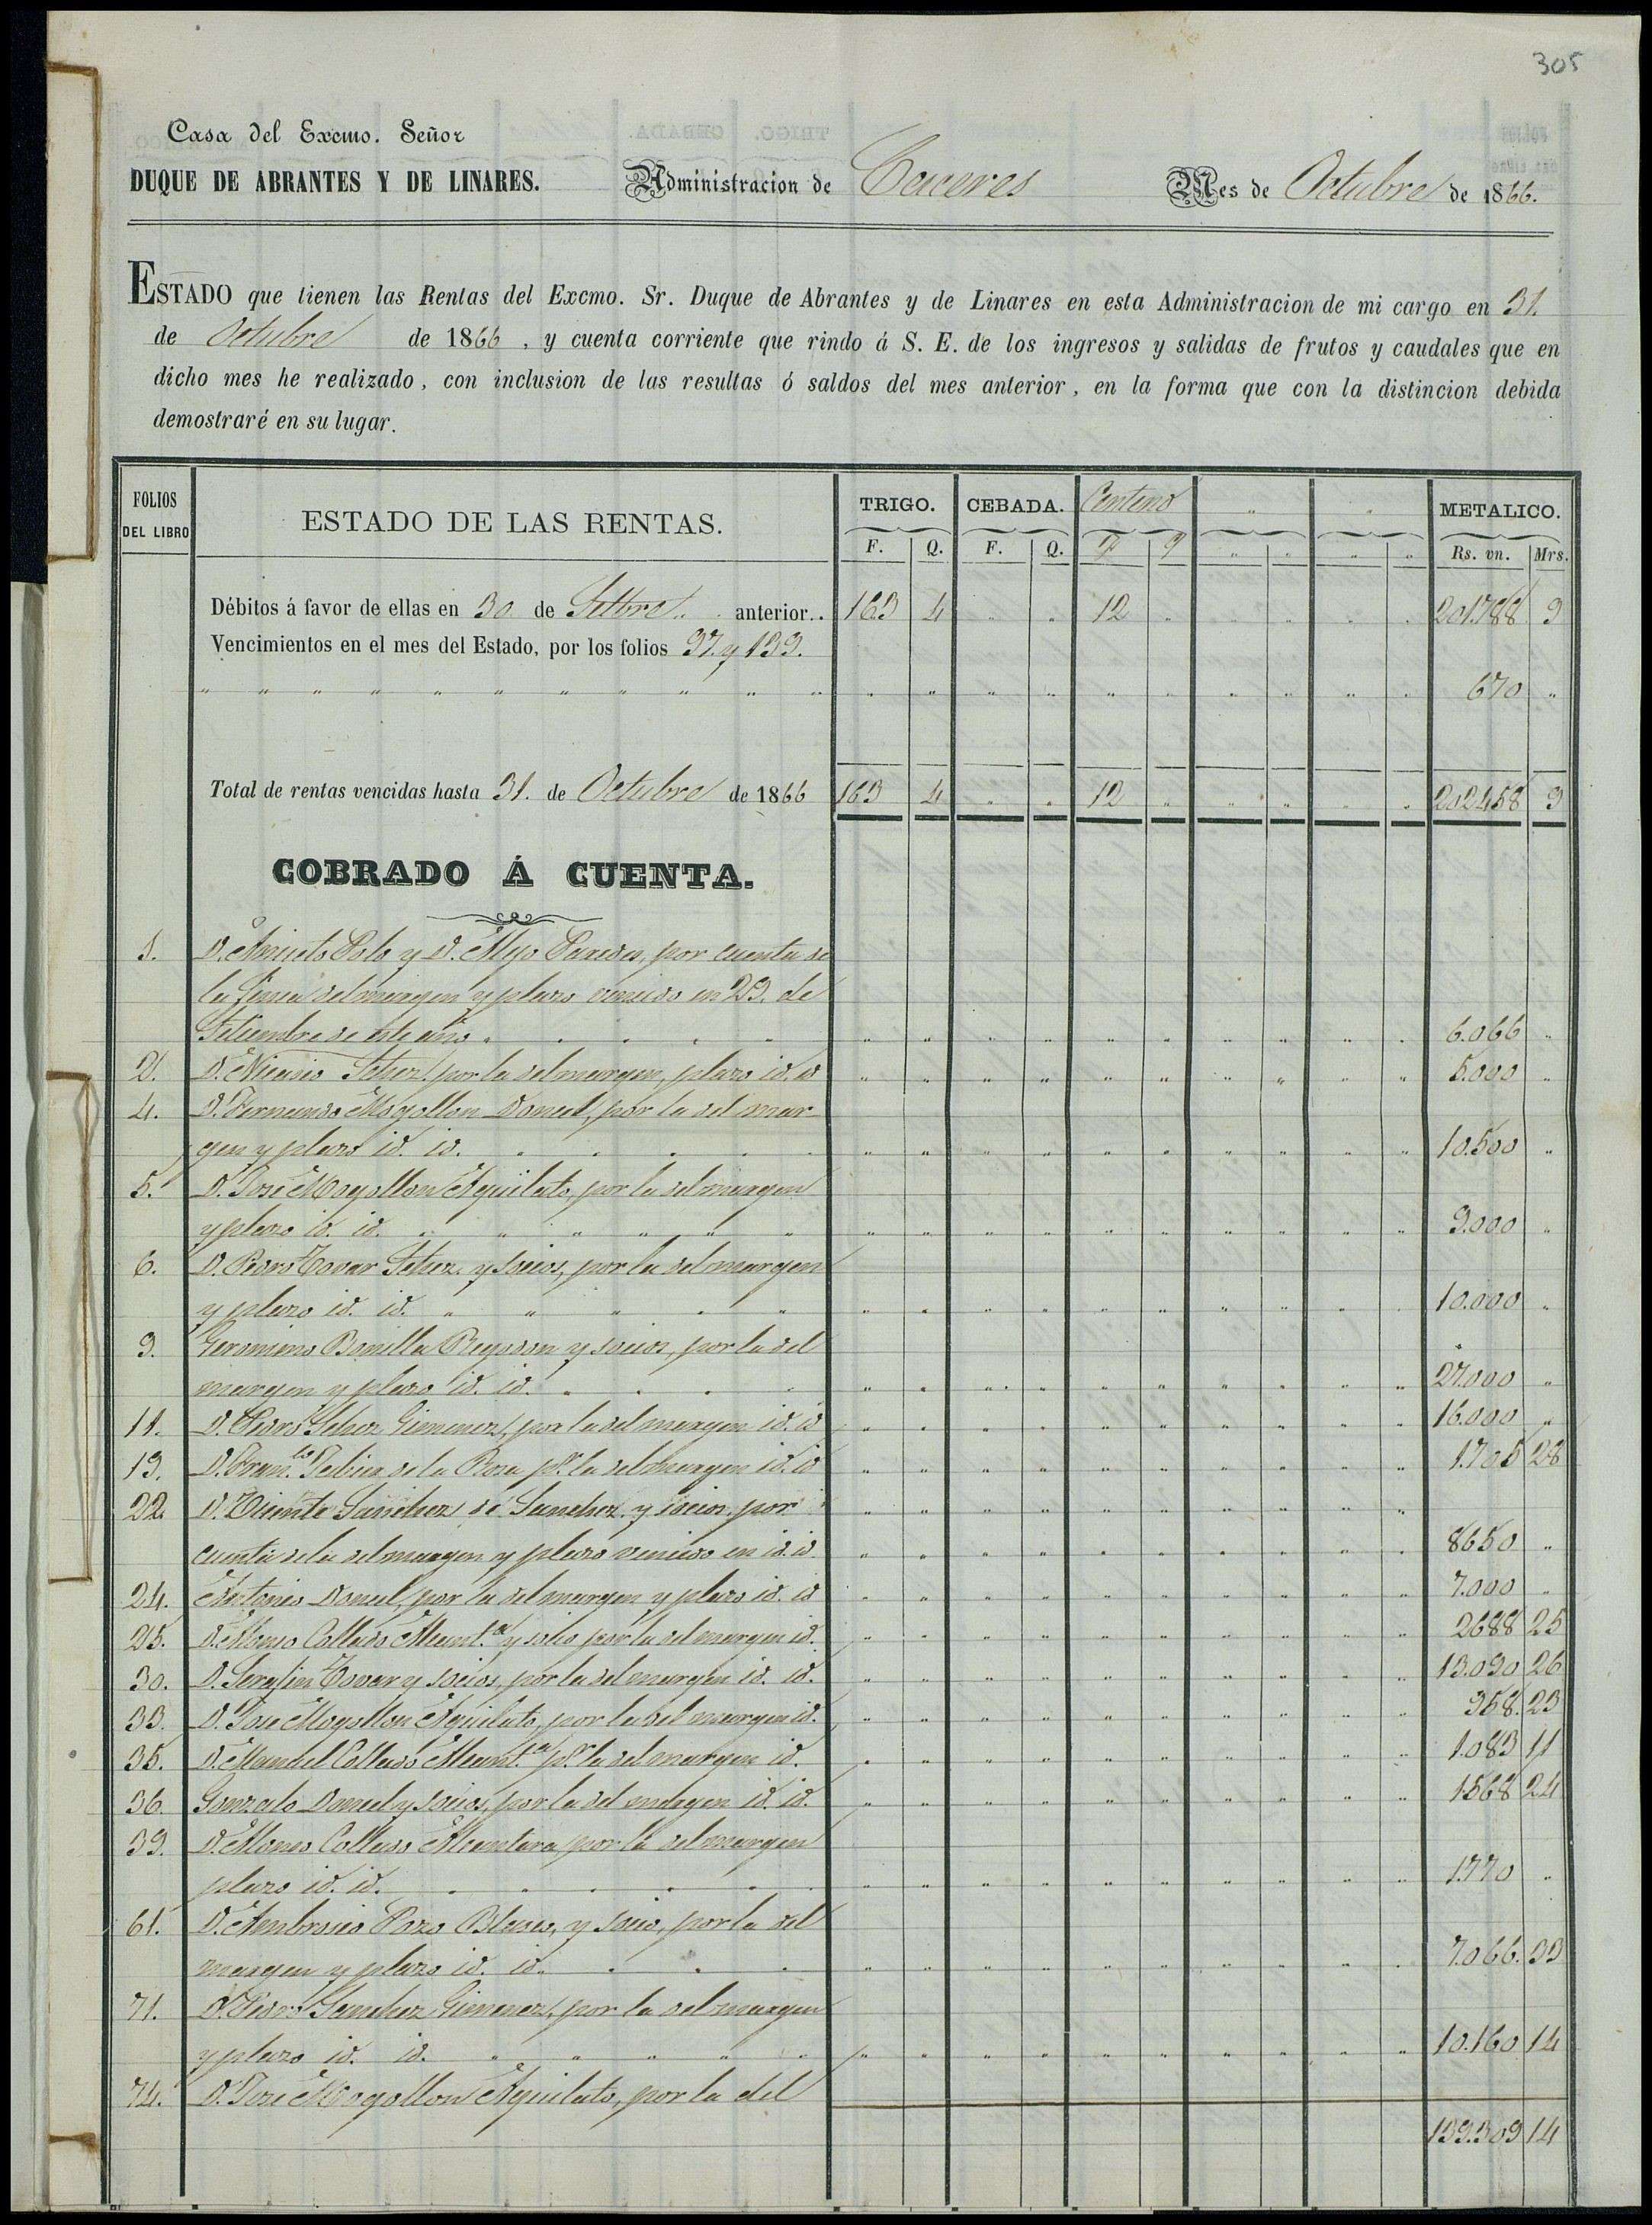 305
Casa del Excmo. Señor
DUQUE DE ABRANTES Y DE LINARES. Administracion de Caceres Mes de Octubre de 1866.
ESTADO que tienen las Rentas del Excmo. Sr. Duque de Abrantes y de Linares en esta Administracion de mi cargo en 31.
de Octubre de 1866, y cuenta corriente que rindo á S. E. de los ingresos y salidas de frutos y caudales que en
dicho mes he realizado, con inclusion de las resultas ó saldos del mes anterior, en la forma que con la distincion debida
demostraré en su lugar.
FOLIOS DEL LIBRO ESTADO DE LAS RENTAS. TRIGO. CEBADA. Centeno " " METALICO.
F. Q. F. Q. F Q " " " " Rs. vn. Mrs.
Débitos á favor de ellas en 30 de Setbre. anterior.. 163 4 " " 12 " " " " " 201.788 9
Vencimientos en el mes del Estado, por los folios 37. y 139.
" " " " " " " " " " " 670 "
Total de rentas vencidas hasta 31. de Octubre de 1866 163 4 " " 12 " " " " " 202458 9
COBRADO Á CUENTA.
1. D. Aniceto Polo y D. Alejo Paredes, por cuenta de
la finca del margen y plazo vencido en 29. de
Setiembre de este año " " " " " 6.066 "
2. D. Nicasio Schez. por la del margen, plazo id. id 5.000 "
4. D. Fernando Mogollon Doncel, por la del mar
gen y plazo id. id. " " " " " 10.500 "
5. D. Jose Mogollon Aguilato, por la del margen
y plazo id. id. " " " " " " 9.000 "
6. D. Pedro Tovar Schez. y socios, por la del margen
y plazo id. id. " " " " " 10.000 "
9. Geronimo Bonilla y socios, por la del
margen y plazo id. id. " " " " 27.000 "
11. D. Pedro Schez Gimenez, por la del margen id. id 16.000 "
13. D. Fran.co de la Rosa pr. la del margen id. id 1.705 28
22. D. Vicente Sanchez de Sanchez y socios, por
cuenta de la del margen y plazo vencido en id. id. 8650 "
24. Antonio Doncel, por la del margen y plazo id. id 7.000 "
25. D. Alonso Collado Alcant.a y socio por la del margen id. 2688 25
30. D. Serafin Tovar y socios, por la del margen id. id. 13.030 26
33. D. Jose Mogollon Aguilato, por la del margen id. 958. 23
35. D. Manuel Collado Alcant.a pr. la del margen id. 1.083 11
36. Gonzalo Doncel y socios, por la del margen id. id. 1568 24
39. D. Alonso Collado Alcantara por la del margen
plazo id. id. " " " " " " 1.770 "
61. D. Ambrosio Pozo Blasco, y socio, por la del
margen y plazo id. id. " " " 7.066. 33
71. D. Pedro Sanchez Gimenez, por la del margen
y plazo id. id. " " " " " 10.160 14
74. D. Jose Mogollon Aguilato, por la del
139.309 14